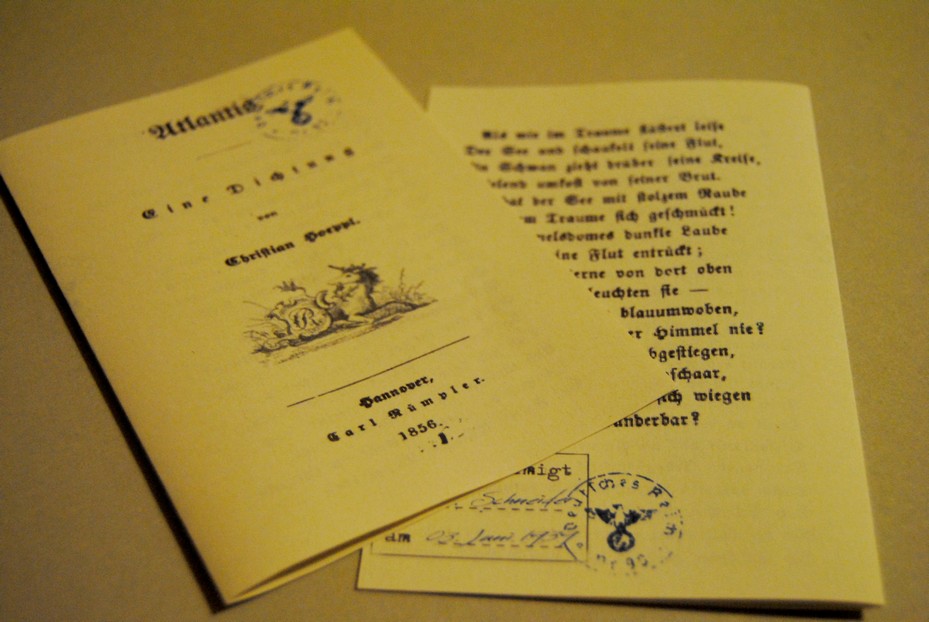 Atlantis
Eine Dichtung
von
Christian Hoeppl.
Hannover,
Carl Rümpler.
1856.
Als wie im Traume flüstert leise
Der See und schaukelt seine Flut,
Schwan zieht drüber seine Kreise,
umkost von seiner Brut.
der See mit stolzem Raube
Traume sich geschmückt!
melsdomes dunkle Laube
ine Flut entrückt;
erne von dort oben
leuchten sie —
blauumwoben,
er Himmel nie?
bgestiegen,
schaar,
sich wiegen
underbar?
migt
Schneider
am 03. Juni
Deutsches Reich